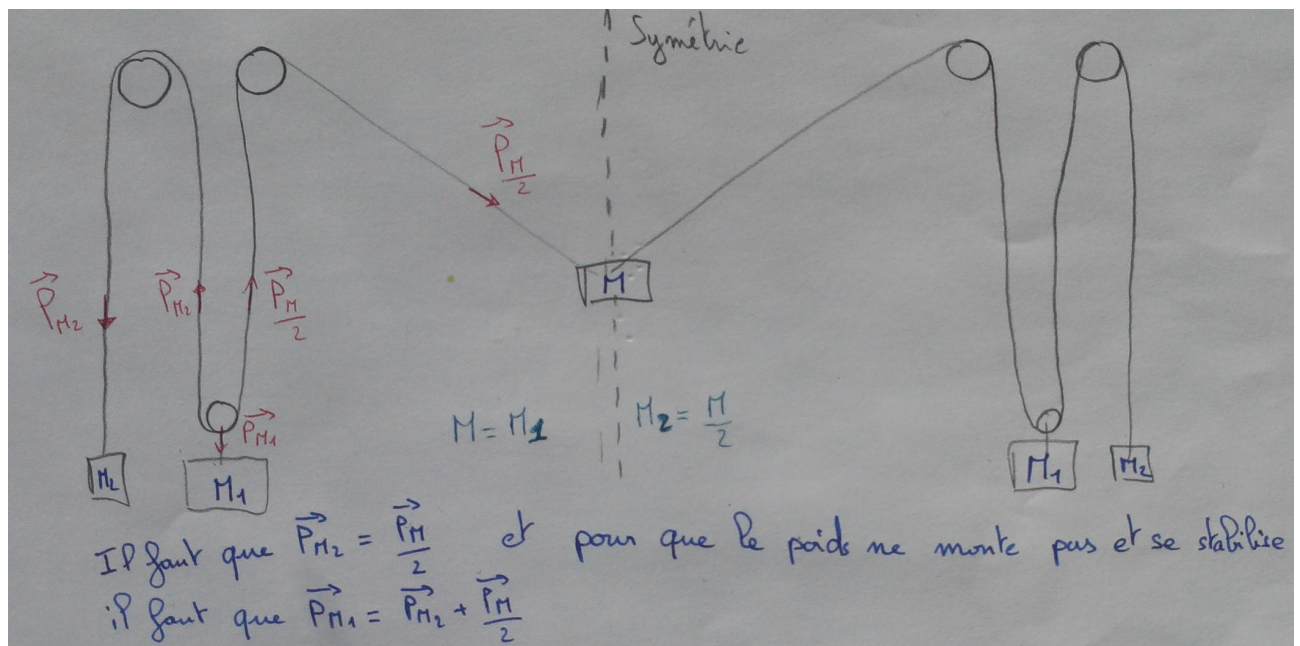 Symétrie
P⃗M/2
P⃗M2
P⃗M2
P⃗M/2
M
P⃗M1
M = M1
M2 = M/2
M2
M1
M1
M2
Il faut que P⃗M2 = P⃗M/2 et pour que le poids ne monte pas et se stabilise
il faut que P⃗M1 = P⃗M2 + P⃗M/2